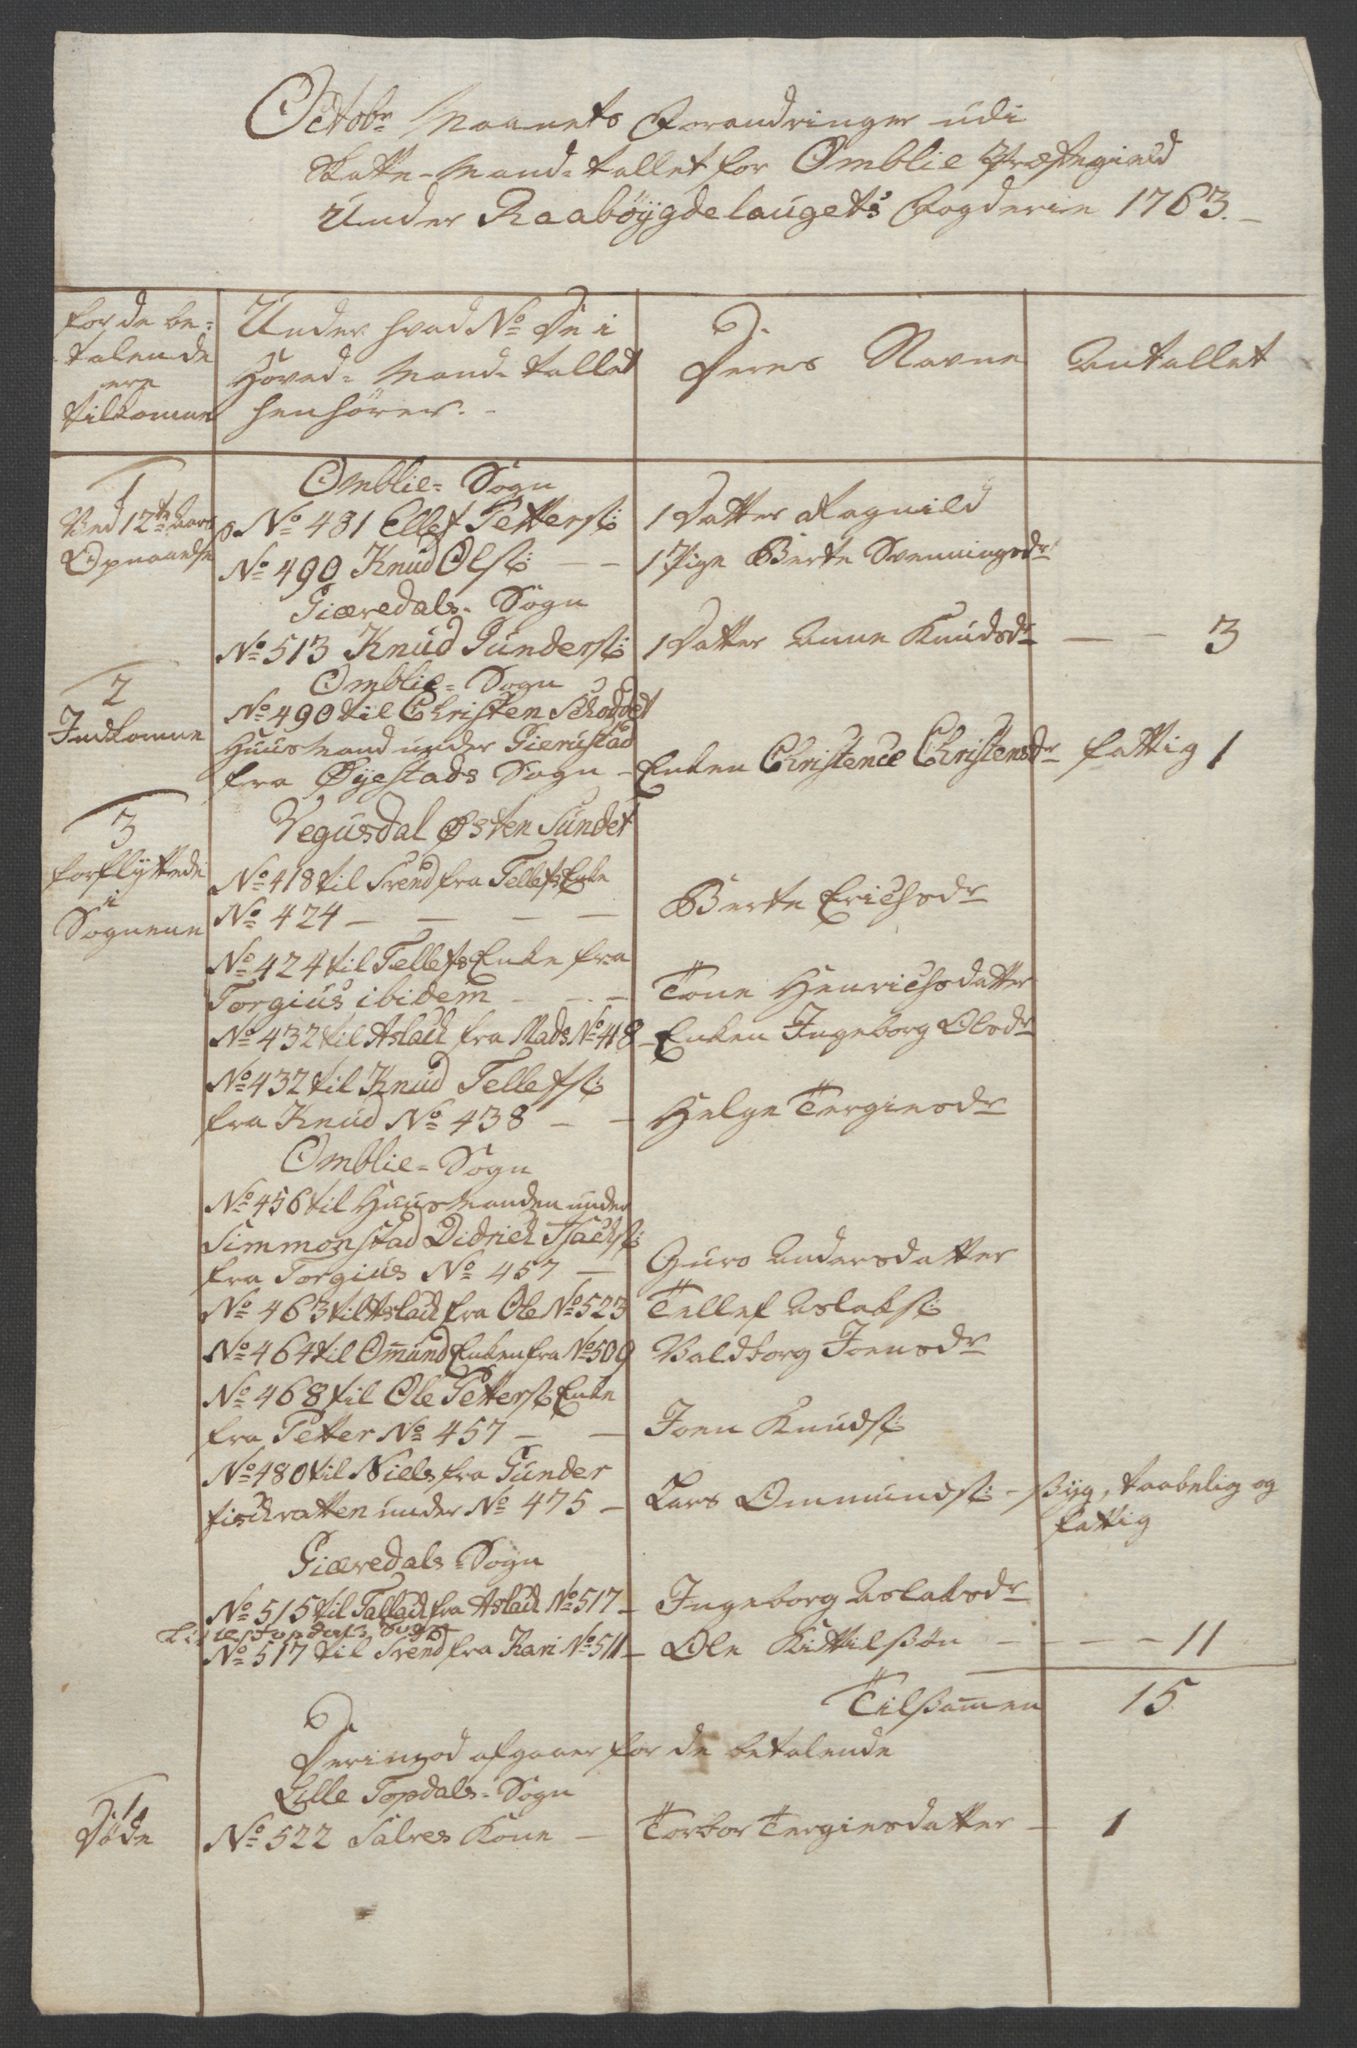 Octobr Maanets Forandringer udi
Skatte-Mand-tallet for Omblie Præstegield
Under Raabøygdelaugets Fogderie 1763.
for de be-
talende
ere
tilkomne
Under hvad No De i
Hoved-Mand-tallet
henhører.
Deres Navne
Antallet
1
Ved 12te Aars
Opnaaelse
Omblie-Sogn
No 481 Ellef Petters: 1 Datter Ragnild
No 490 Knud Ols: - - 1 Pige Berte Svenningsdr
Giæredals-Sogn
No 513 Knud Gunders: 1 Datter Anne Knudsdr - - 3
2
Indkomne
Omblie-Sogn
No 490 til Christen Schoddet
Huusmand under Gierustad
fra Øyestads Sogn - Enken Christence Christensdr fattig 1
3
forflyttede
i
Sognene
Vegusdal Østen Sundet
No 418 til Svend fra Tellefs Enke
No 424 - - - - Berte Erichsdr
No 424 til Tellefs Enke fra
Torgius ibidem - - - Tone Henrichsdatter
No 432 til Aslach fra Mads No 418 - Enken Ingeborg Olsdr
No 432 til Knud Tellefs:
fra Knud No 438 - - Helge Tergiesdr
Omblie-Sogn
No 456 til Huusmanden under
Simmonstad Didrich Isachs:
fra Torgius No 457 - Guro Andersdatter
No 463 til Aslach fra Ole No 523 Tellef Aslaks:
No 464 til Omund Enken fra No 509 Valdborg Joensdr
No 468 til Ole Petters: Enke
fra Petter No 457 - - Joen Knuds:
No 480 til Niels fra Gunder
fischvatten under No 475 - Lars Ommunds: - Syg, taabelig og
fattig
Giæredals-Sogn
No 515 til Tallach fra Aslach No 517 - Ingeborg Aslaksdr
Lillestopdals Sogn
No 517 til Svend fra Kari No 511 - Ole Kittilsøn - - - 11
Tilsamen 15
Derimod afgaaer for de betalende
Lille Topdals-Sogn
1
Døde
No 522 Salves Kone - Torbor Tergiesdatter - 1